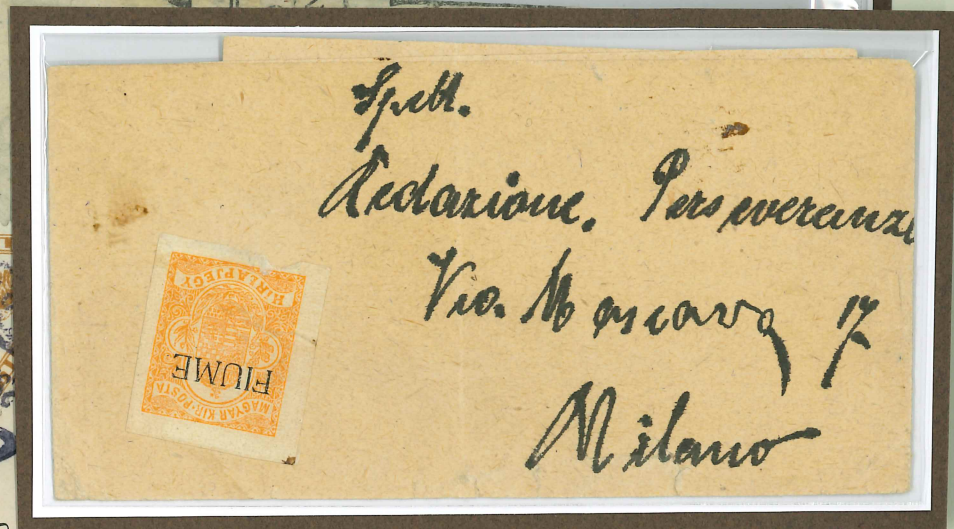 Spett.
Redazione. Perseveranza
Via Moscova 17
Milano
HIRLAPJEGY
FIUME
MAGYAR·KIR·POSTA